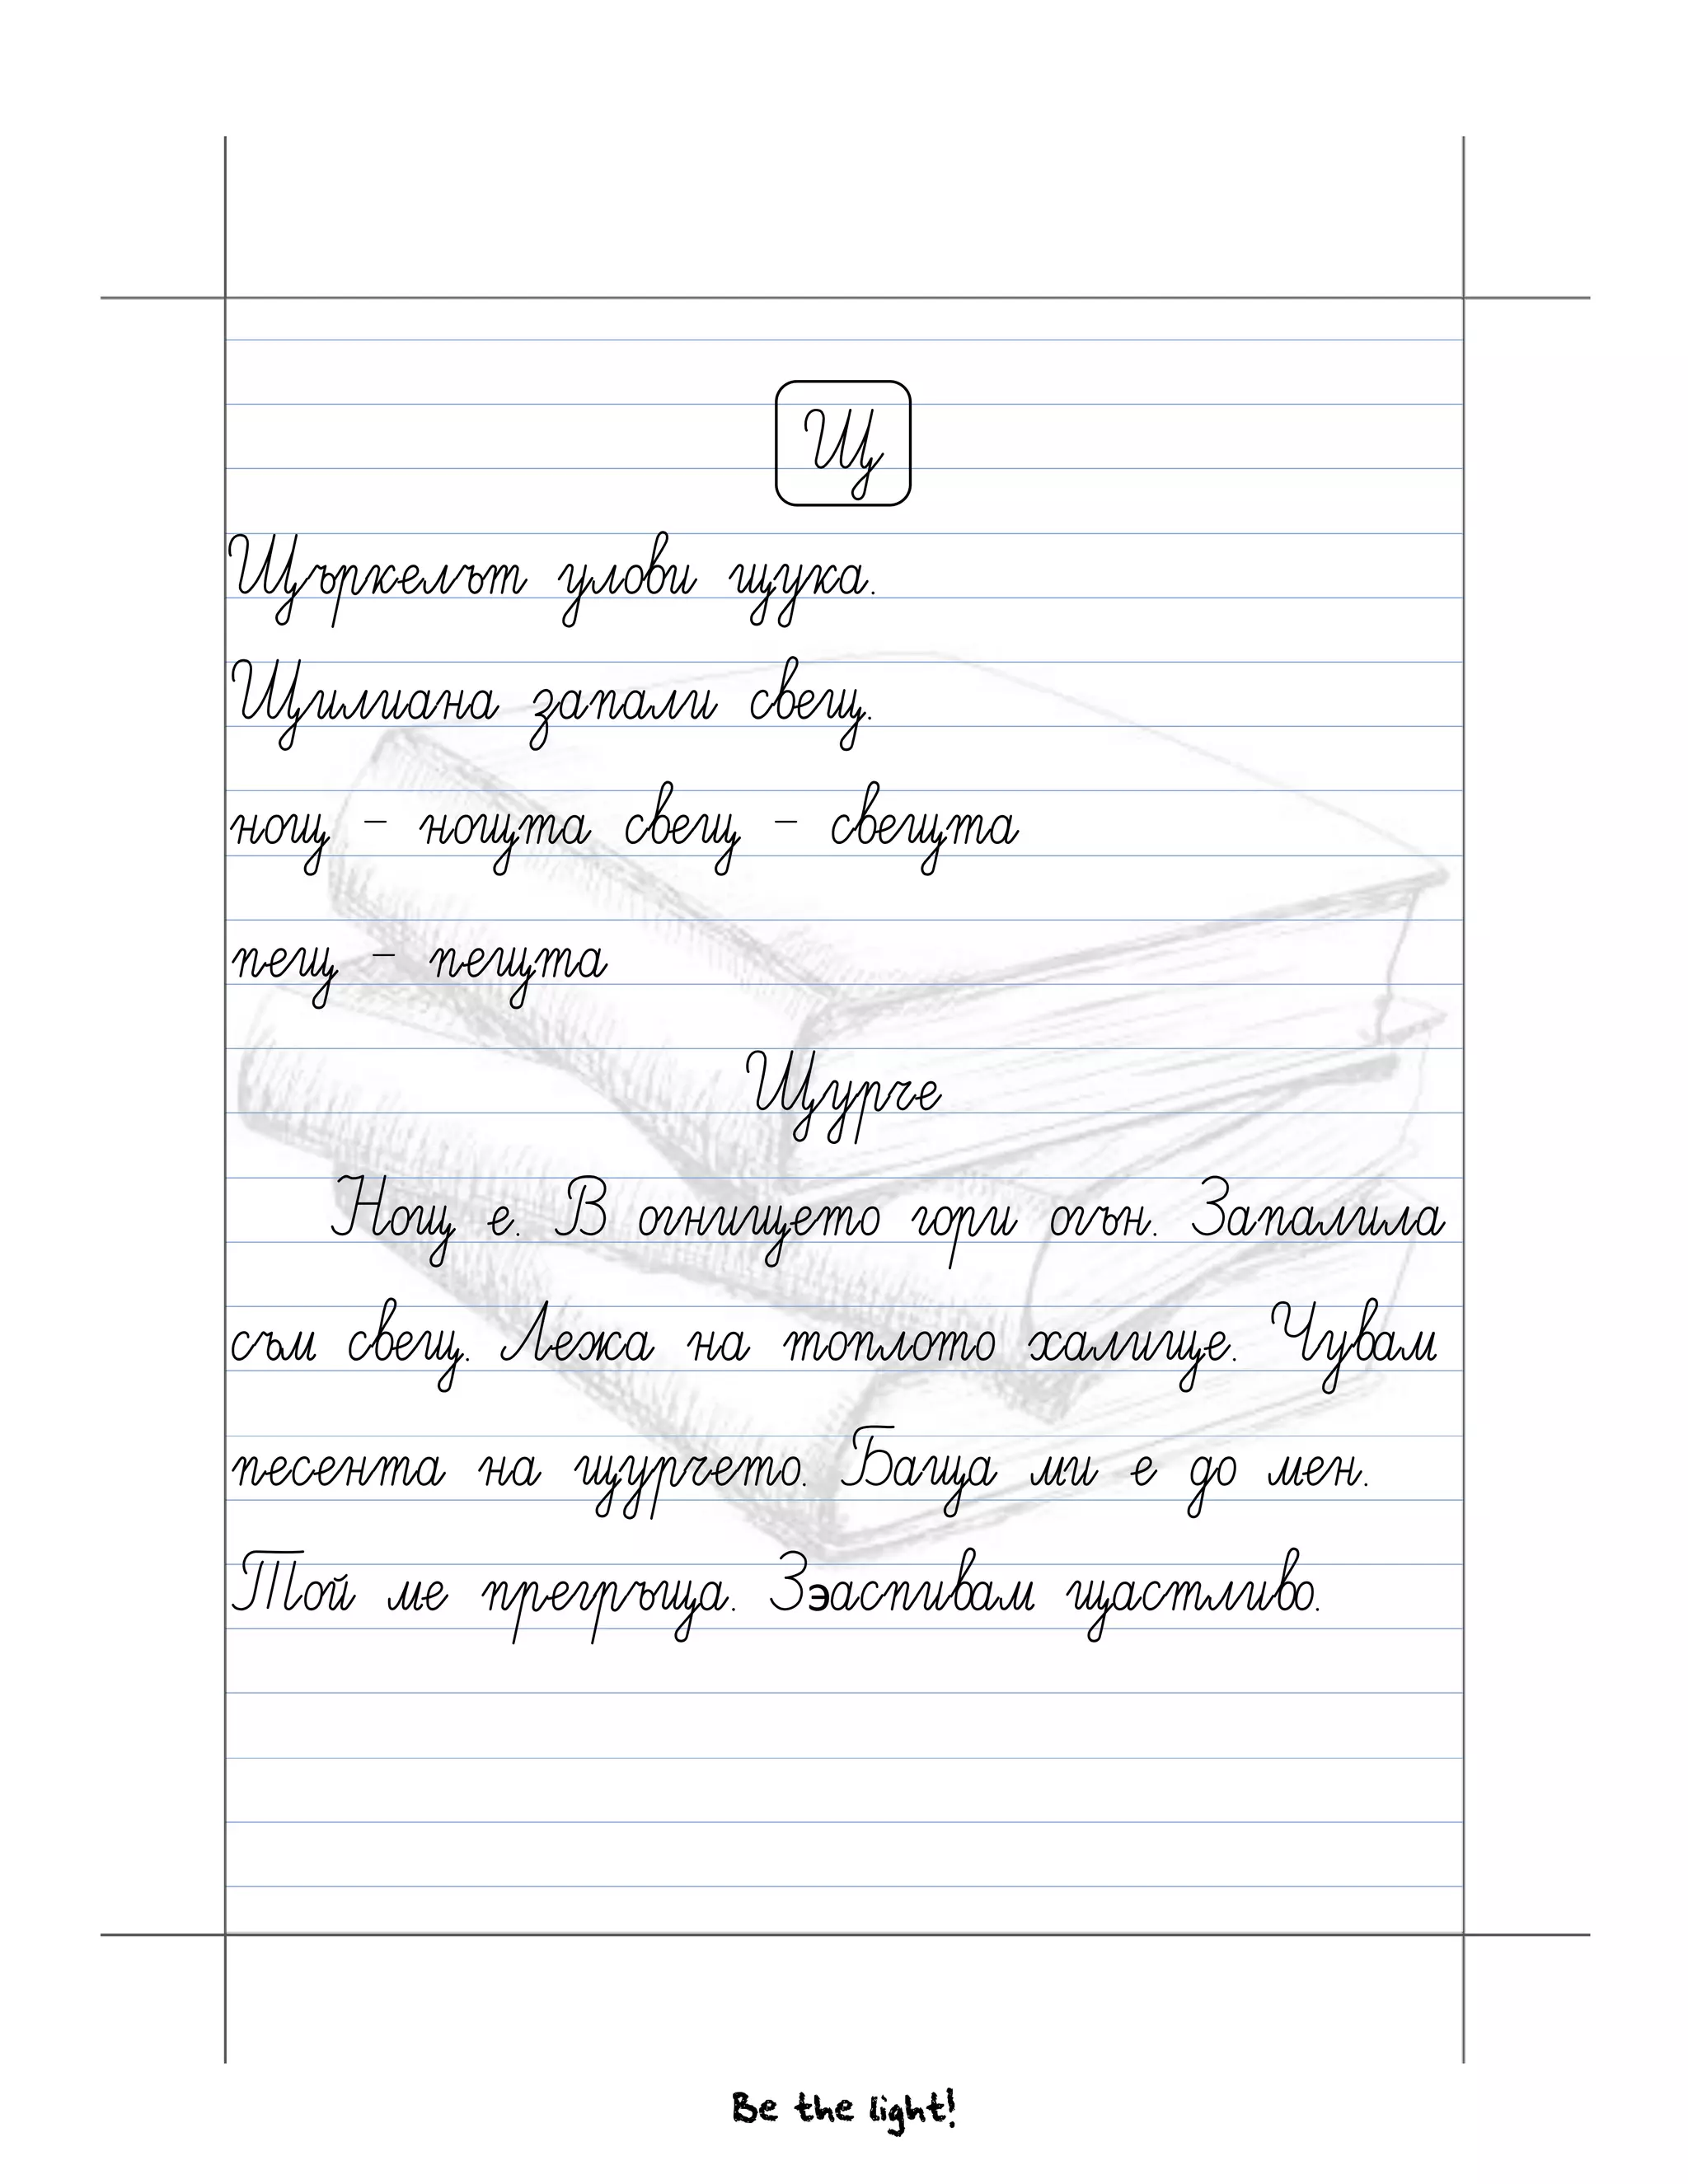 Щ
Щъркелът улови щука.
Щилиана запали свещ.
нощ - нощта свещ - свещта
пещ - пещта
Щурче
Нощ е. В огнището гори огън. Запалила
съм свещ. Лежа на топлото халище. Чувам
песента на щурчето. Баща ми е до мен.
Той ме прегръща. Зэаспивам щастливо.
Be the light!